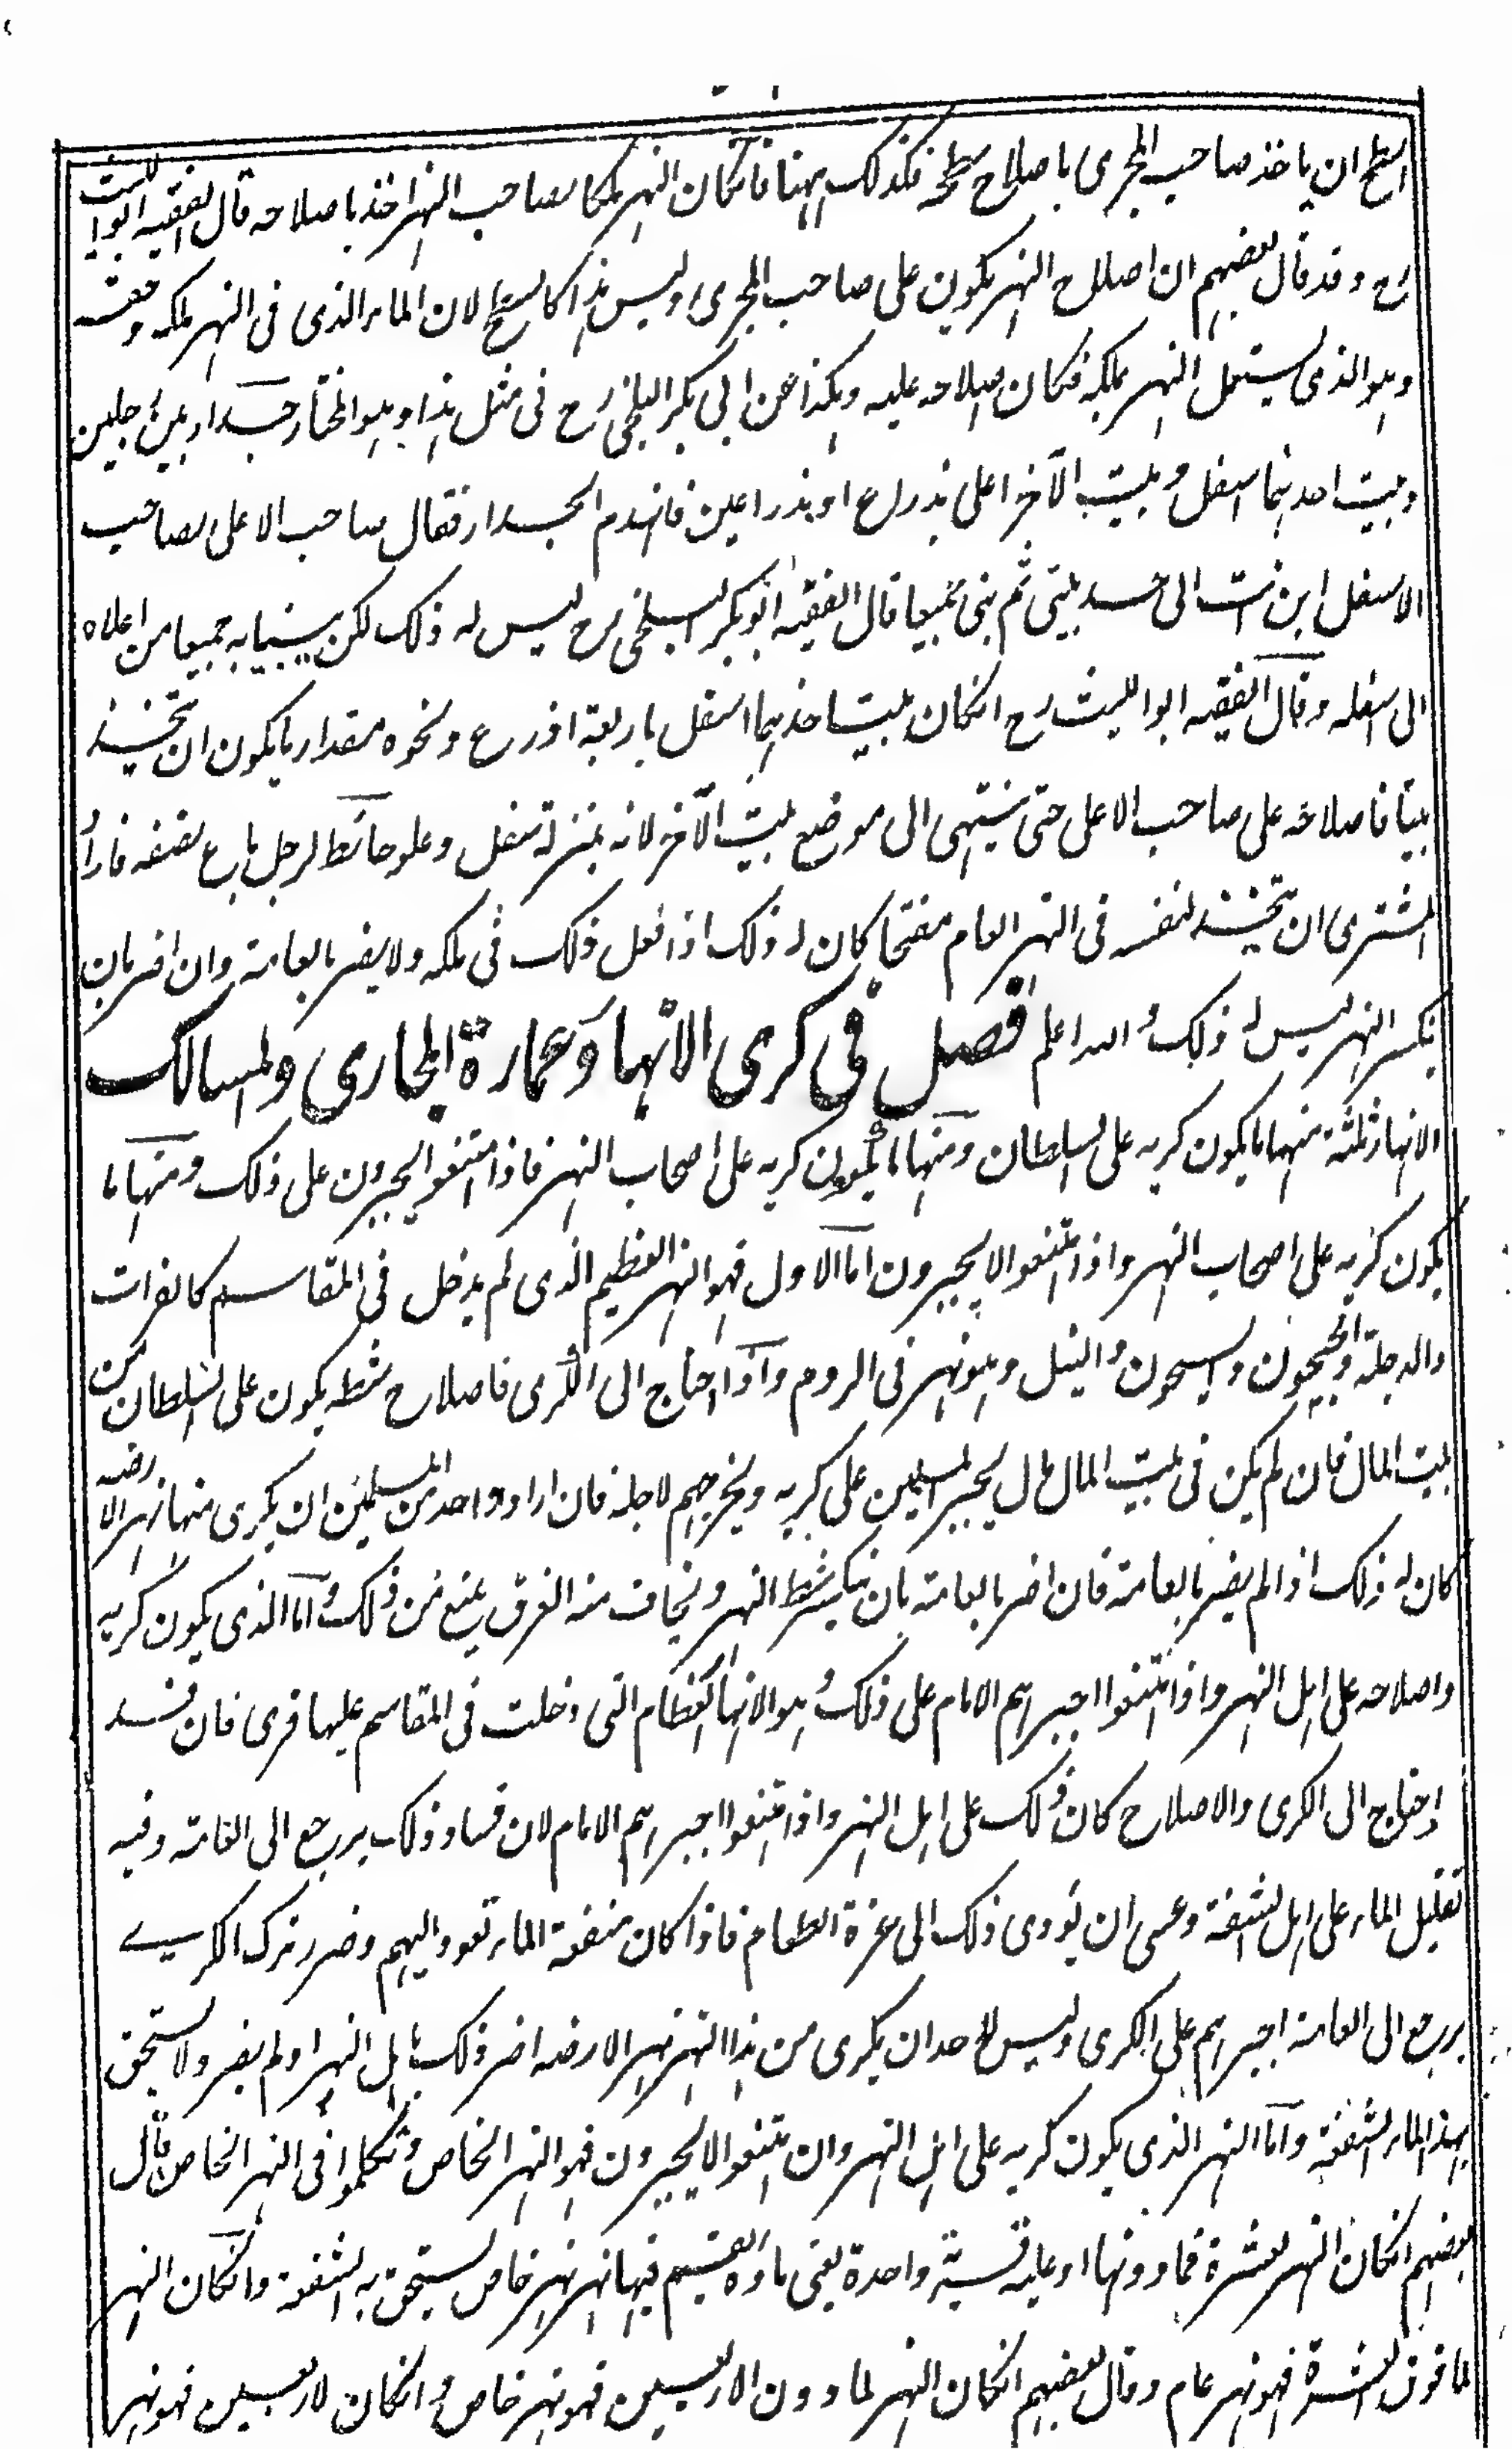 السطح ان ياخذ صاحب المجرى باصلاح سطحه فكذلك ههنا فانكان النهر ملكا لصاحب النهر اخذ باصلاحه قال الفقيه ابو الليث
رح وقد قال بعضهم ان اصلاح النهر يكون على صاحب المجرى وليس هذا كالسطح لان الماء الذى فى النهر ملكه وحقه
وهو الذى يستعمل النهر بملكه فكان صلاحه عليه وهكذا عن ابى بكر البلخى رح فى مثل هذا وهو المختار جدار بين رجلين
وبيت احدهما اسفل وبيت الآخر اعلى بذراع او بذراعين فانهدم الجدار فقال صاحب الاعلى لصاحب
الاسفل ابن انت الى حد بيتى ثم نبنى جميعا قال الفقيه ابو بكر البلخى رح ليس له ذلك لكن يبنيانه جميعا من اعلاه
الى اسفله وقال الفقيه ابو الليث رح انكان بيت احدهما اسفل باربعة اذرع ونحوه مقدار ما يكون ان يتخذ
بيتا فاصلاحه على صاحب الاعلى حتى ينتهى الى موضع بيت الآخر لانه بمنزلة سفل وعلو حائط لرجل باع نصفه فاراد
المشترى ان يتخذ لنفسه فى النهر العام مفتحا كان له ذلك اذا فعل ذلك فى ملكه ولا يضر بالعامة وان اضر بان
ينكسر النهر ليس له ذلك والله اعلم فصل فى كرى الانهار وعمارة المجارى والمسالك
الانهار ثلثة منها ما يكون كريه على السلطان ومنها ما يكون كريه على اصحاب النهر فاذا امتنعوا يجبرون على ذلك ومنها ما
يكون كريه على اصحاب النهر واذا امتنعوا لا يجبرون اما الاول فهو النهر العظيم الذى لم يدخل فى المقاسم كالفرات
والدجلة والجيحون والسيحون والنيل وهو نهر فى الروم واذا احتاج الى الكرى فاصلاح شطه يكون على السلطان من
بيت المال فان لم يكن فى بيت المال مال يجبر المسلمين على كريه ويخرجهم لاجله فان اراد واحد من المسلمين ان يكرى منها نهرا لارضه
كان له ذلك اذا لم يضر بالعامة فان اضر بالعامة بان ينكسر شط النهر ويخاف منه الغرق يمنع من ذلك واما الذى يكون كريه
واصلاحه على اهل النهر واذا امتنعوا اجبرهم الامام على ذلك وهو الانهار العظام التى دخلت فى المقاسم عليها قرى فان فسد
احتاج الى الكرى والاصلاح كان ذلك على اهل النهر واذا امتنعوا اجبرهم الامام لان فساد ذلك يرجع الى العامة وفيه
تقليل الماء على اهل الشفة وعسى ان يؤدى ذلك الى عزة الطعام فاذا كان منفعة الماء تعود اليهم وضرر ترك الكرى
يرجع الى العامة اجبرهم على الكرى وليس لاحد ان يكرى من هذا النهر نهرا لارضه اضر ذلك باهل النهر او لم يضر ولا يستحق
بهذا الماء الشفعة واما النهر الذى يكون كريه على اهل النهر وان امتنعوا لا يجبرون فهو النهر الخاص وتكلموا فى النهر الخاص قال
بعضهم انكان النهر لعشرة فما دونها او عليه قرية واحدة يفنى ماؤه فيها فهو نهر خاص يستحق به الشفعة وانكان النهر
لما فوق العشرة فهو نهر عام وقال بعضهم انكان النهر لما دون الاربعين فهو نهر خاص وانكان لاربعين فهو نهر